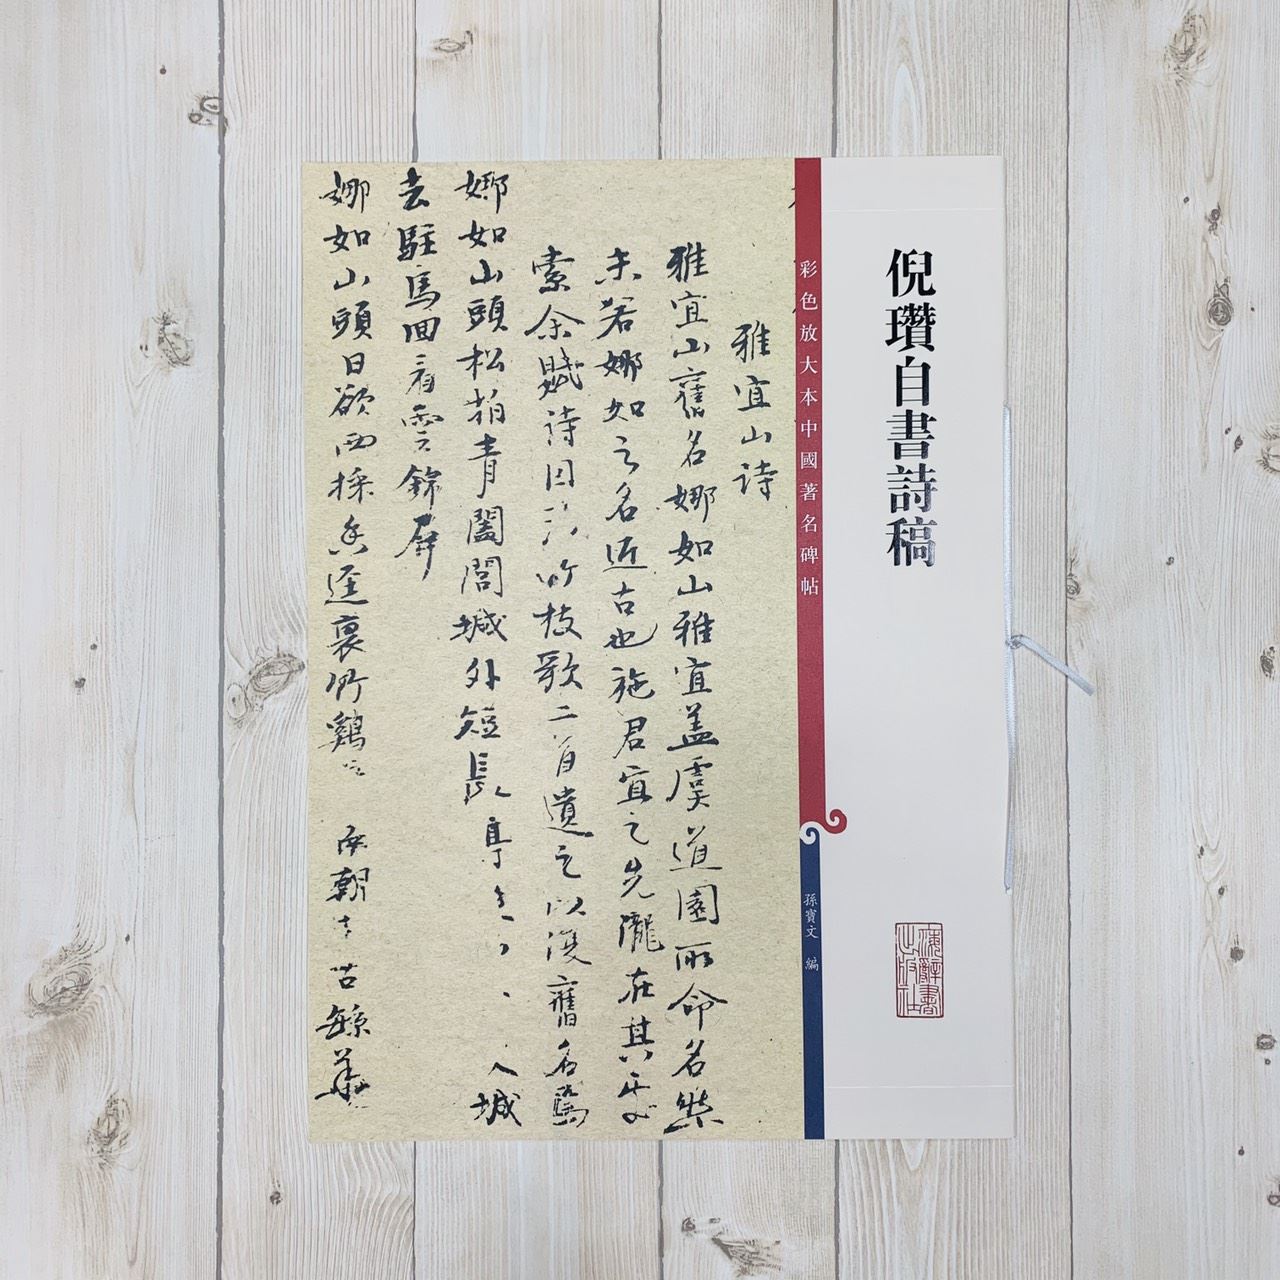 倪瓚自書詩稿
彩色放大本中國著名碑帖
孫寶文 編
海辭書出版社
雅宜山詩
雅宜山舊名娜如山雅宜蓋虞道園所命名然
未若娜如之名近古也施君宜之先隴在其下
索余賦詩因 竹枝歌二首遺之以復舊名焉
娜如山頭松柏青闔閭城外短長亭 入城
去駐馬回看雲錦屏
娜如山頭日欲西採香逕裏竹鷄 朝 古 華